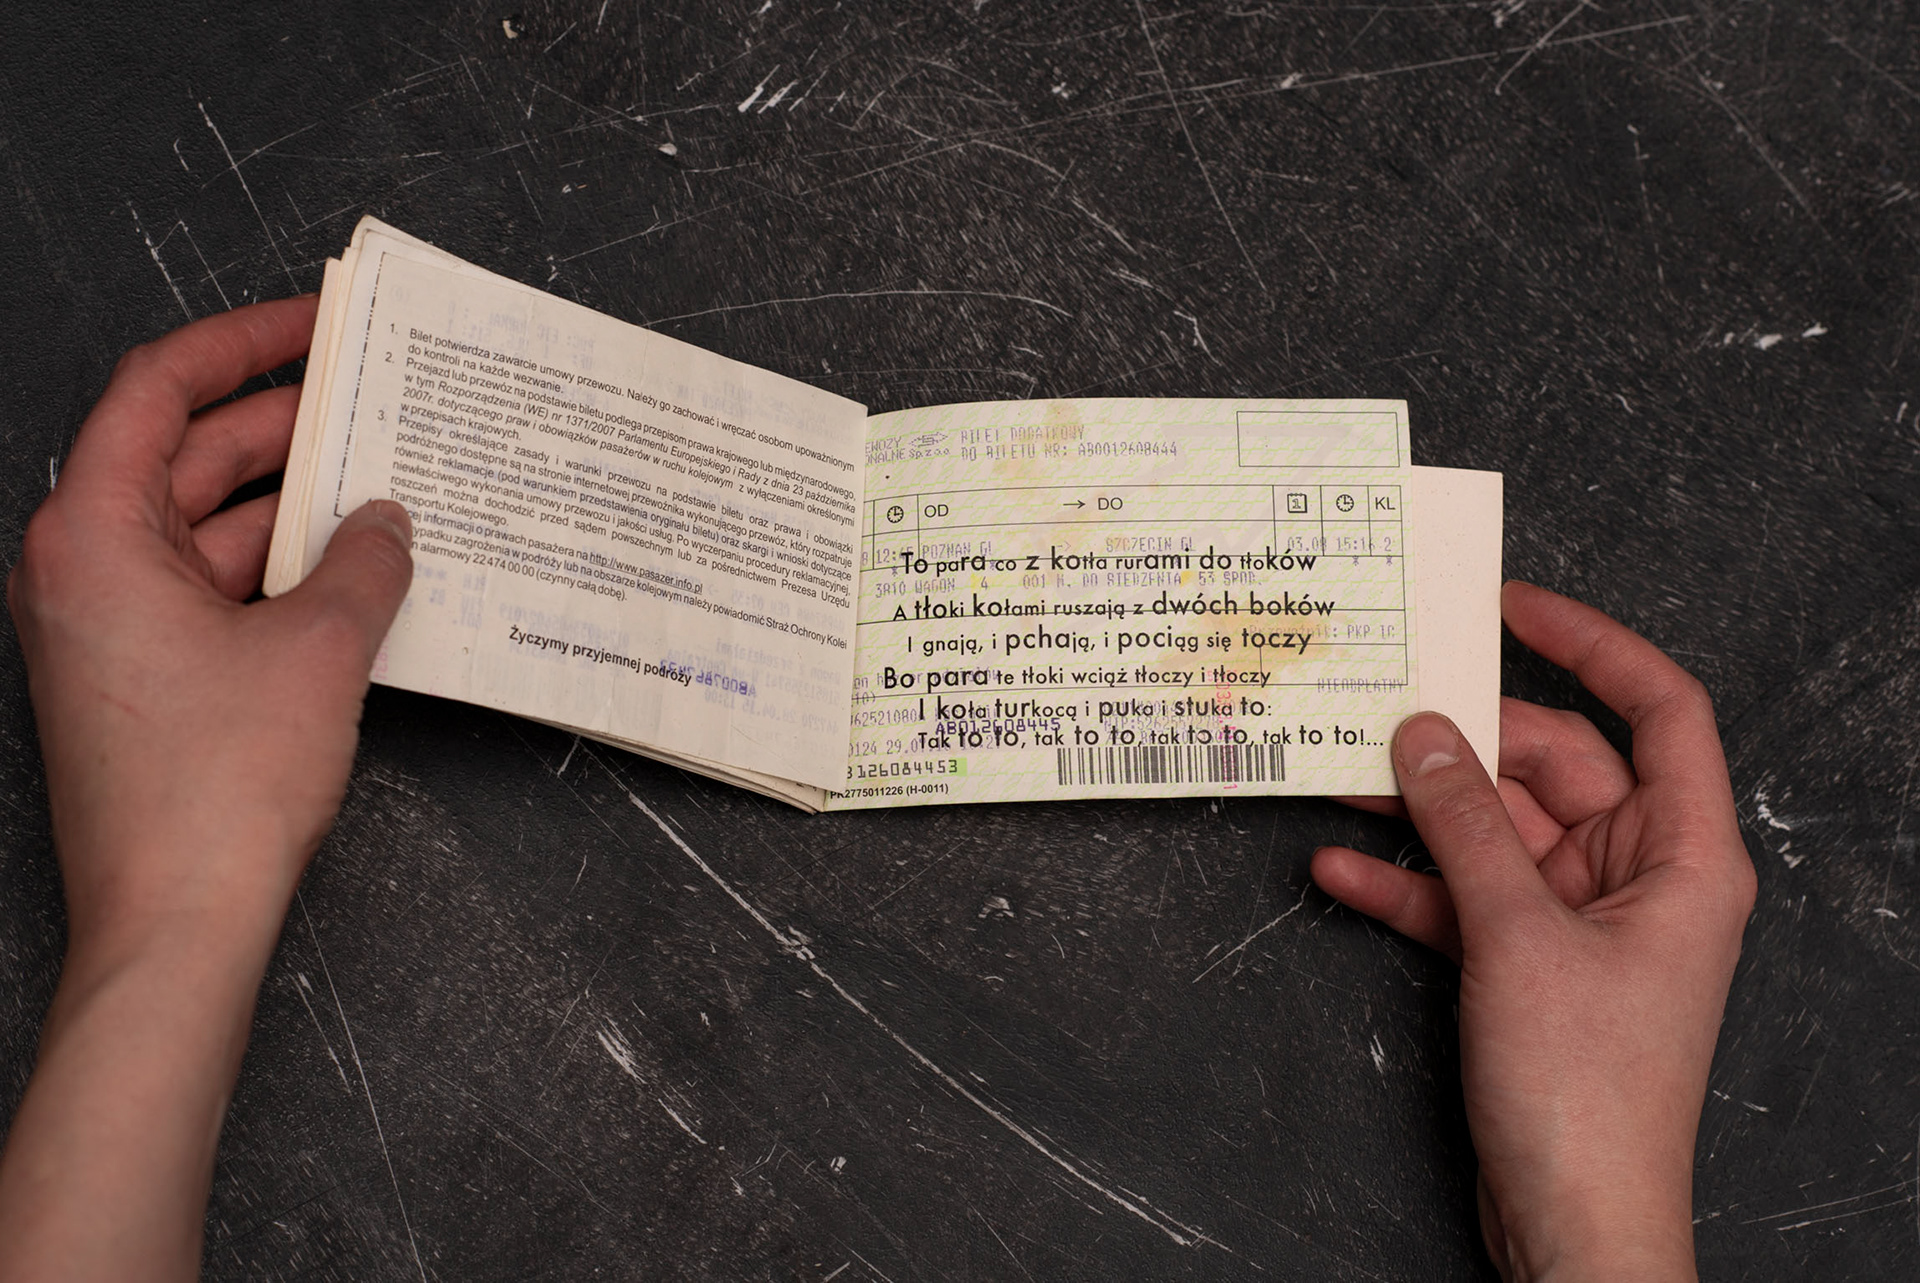 1. Bilet potwierdza zawarcie umowy przewozu. Należy go zachować i wręczać osobom upoważnionym
do kontroli na każde wezwanie.
2. Przejazd lub przewóz na podstawie biletu podlega przepisom prawa krajowego lub międzynarodowego,
w tym Rozporządzenia (WE) nr 1371/2007 Parlamentu Europejskiego i Rady z dnia 23 października
2007r. dotyczącego praw i obowiązków pasażerów w ruchu kolejowym z wyłączeniami określonymi
w przepisach krajowych.
3. Przepisy określające zasady i warunki przewozu na podstawie biletu oraz prawa i obowiązki
podróżnego dostępne są na stronie internetowej przewoźnika wykonującego przewóz, który rozpatruje
również reklamacje (pod warunkiem przedstawienia oryginału biletu) oraz skargi i wnioski dotyczące
niewłaściwego wykonania umowy przewozu i jakości usług. Po wyczerpaniu procedury reklamacyjnej,
roszczeń można dochodzić przed sądem powszechnym lub za pośrednictwem Prezesa Urzędu
Transportu Kolejowego.
informacji o prawach pasażera na http://www.pasazer.info.pl
zagrożenia w podróży lub na obszarze kolejowym należy powiadomić Straż Ochrony Kolei
alarmowy 22 474 00 00 (czynny całą dobę).
Życzymy przyjemnej podróży
BILET DODATKOWY
Sp.z o.o. DO BILETU NR: AB0012608444
OD → DO KL
POZNAŃ GŁ SZCZECIN GŁ 03.08 15:16 2
To para co z kotła rurami do tłoków
WAGON 4 001 M. DO SIEDZENIA 53 ŚROD.
A tłoki kołami ruszają z dwóch boków
PKP IC
I gnają, i pchają, i pociąg się toczy
Bo para te tłoki wciąż tłoczy i tłoczy
NIEODPŁATNY
I koła turkocą i puka i stuka to:
AB012608445
Tak to to, tak to to, tak to to, tak to to!...
126084453
PK2775011226 (H-0011)